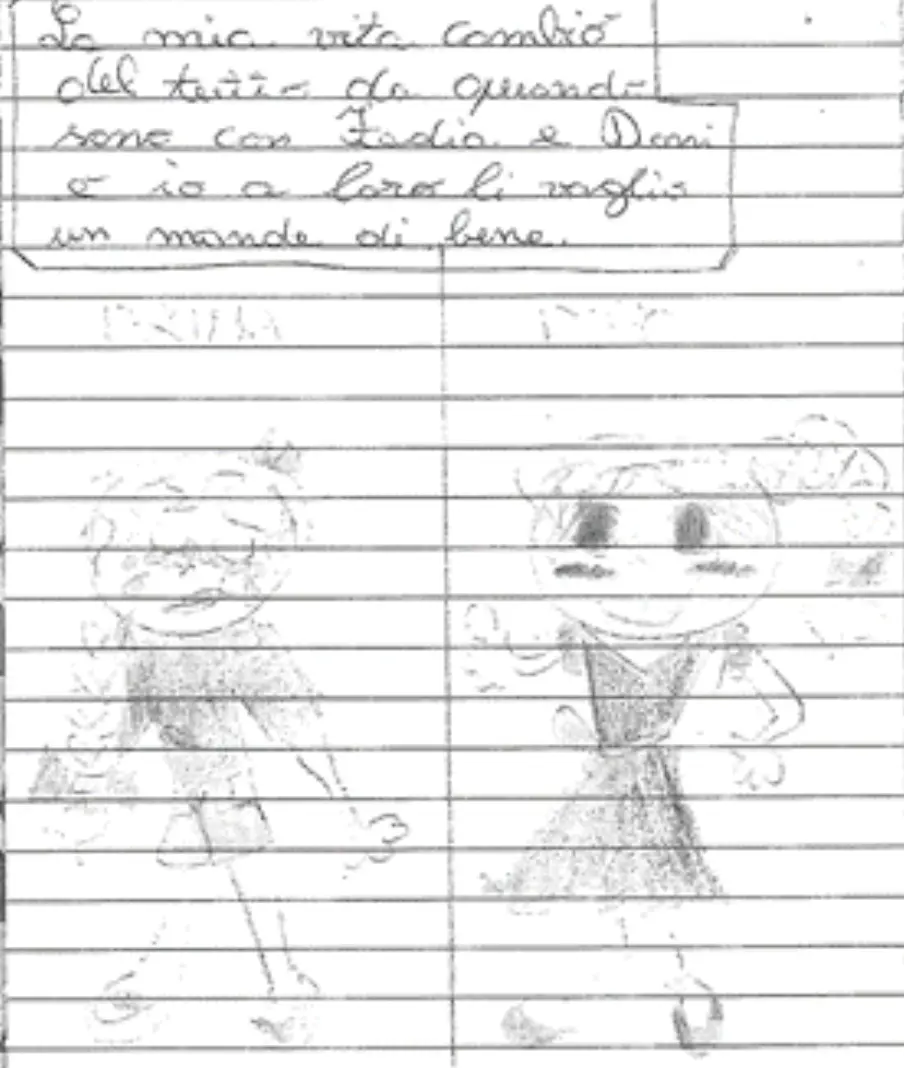 La mia vita cambiò
del tutto da quando
sono con Fadia e Dani
e io a loro li voglio
un mondo di bene.